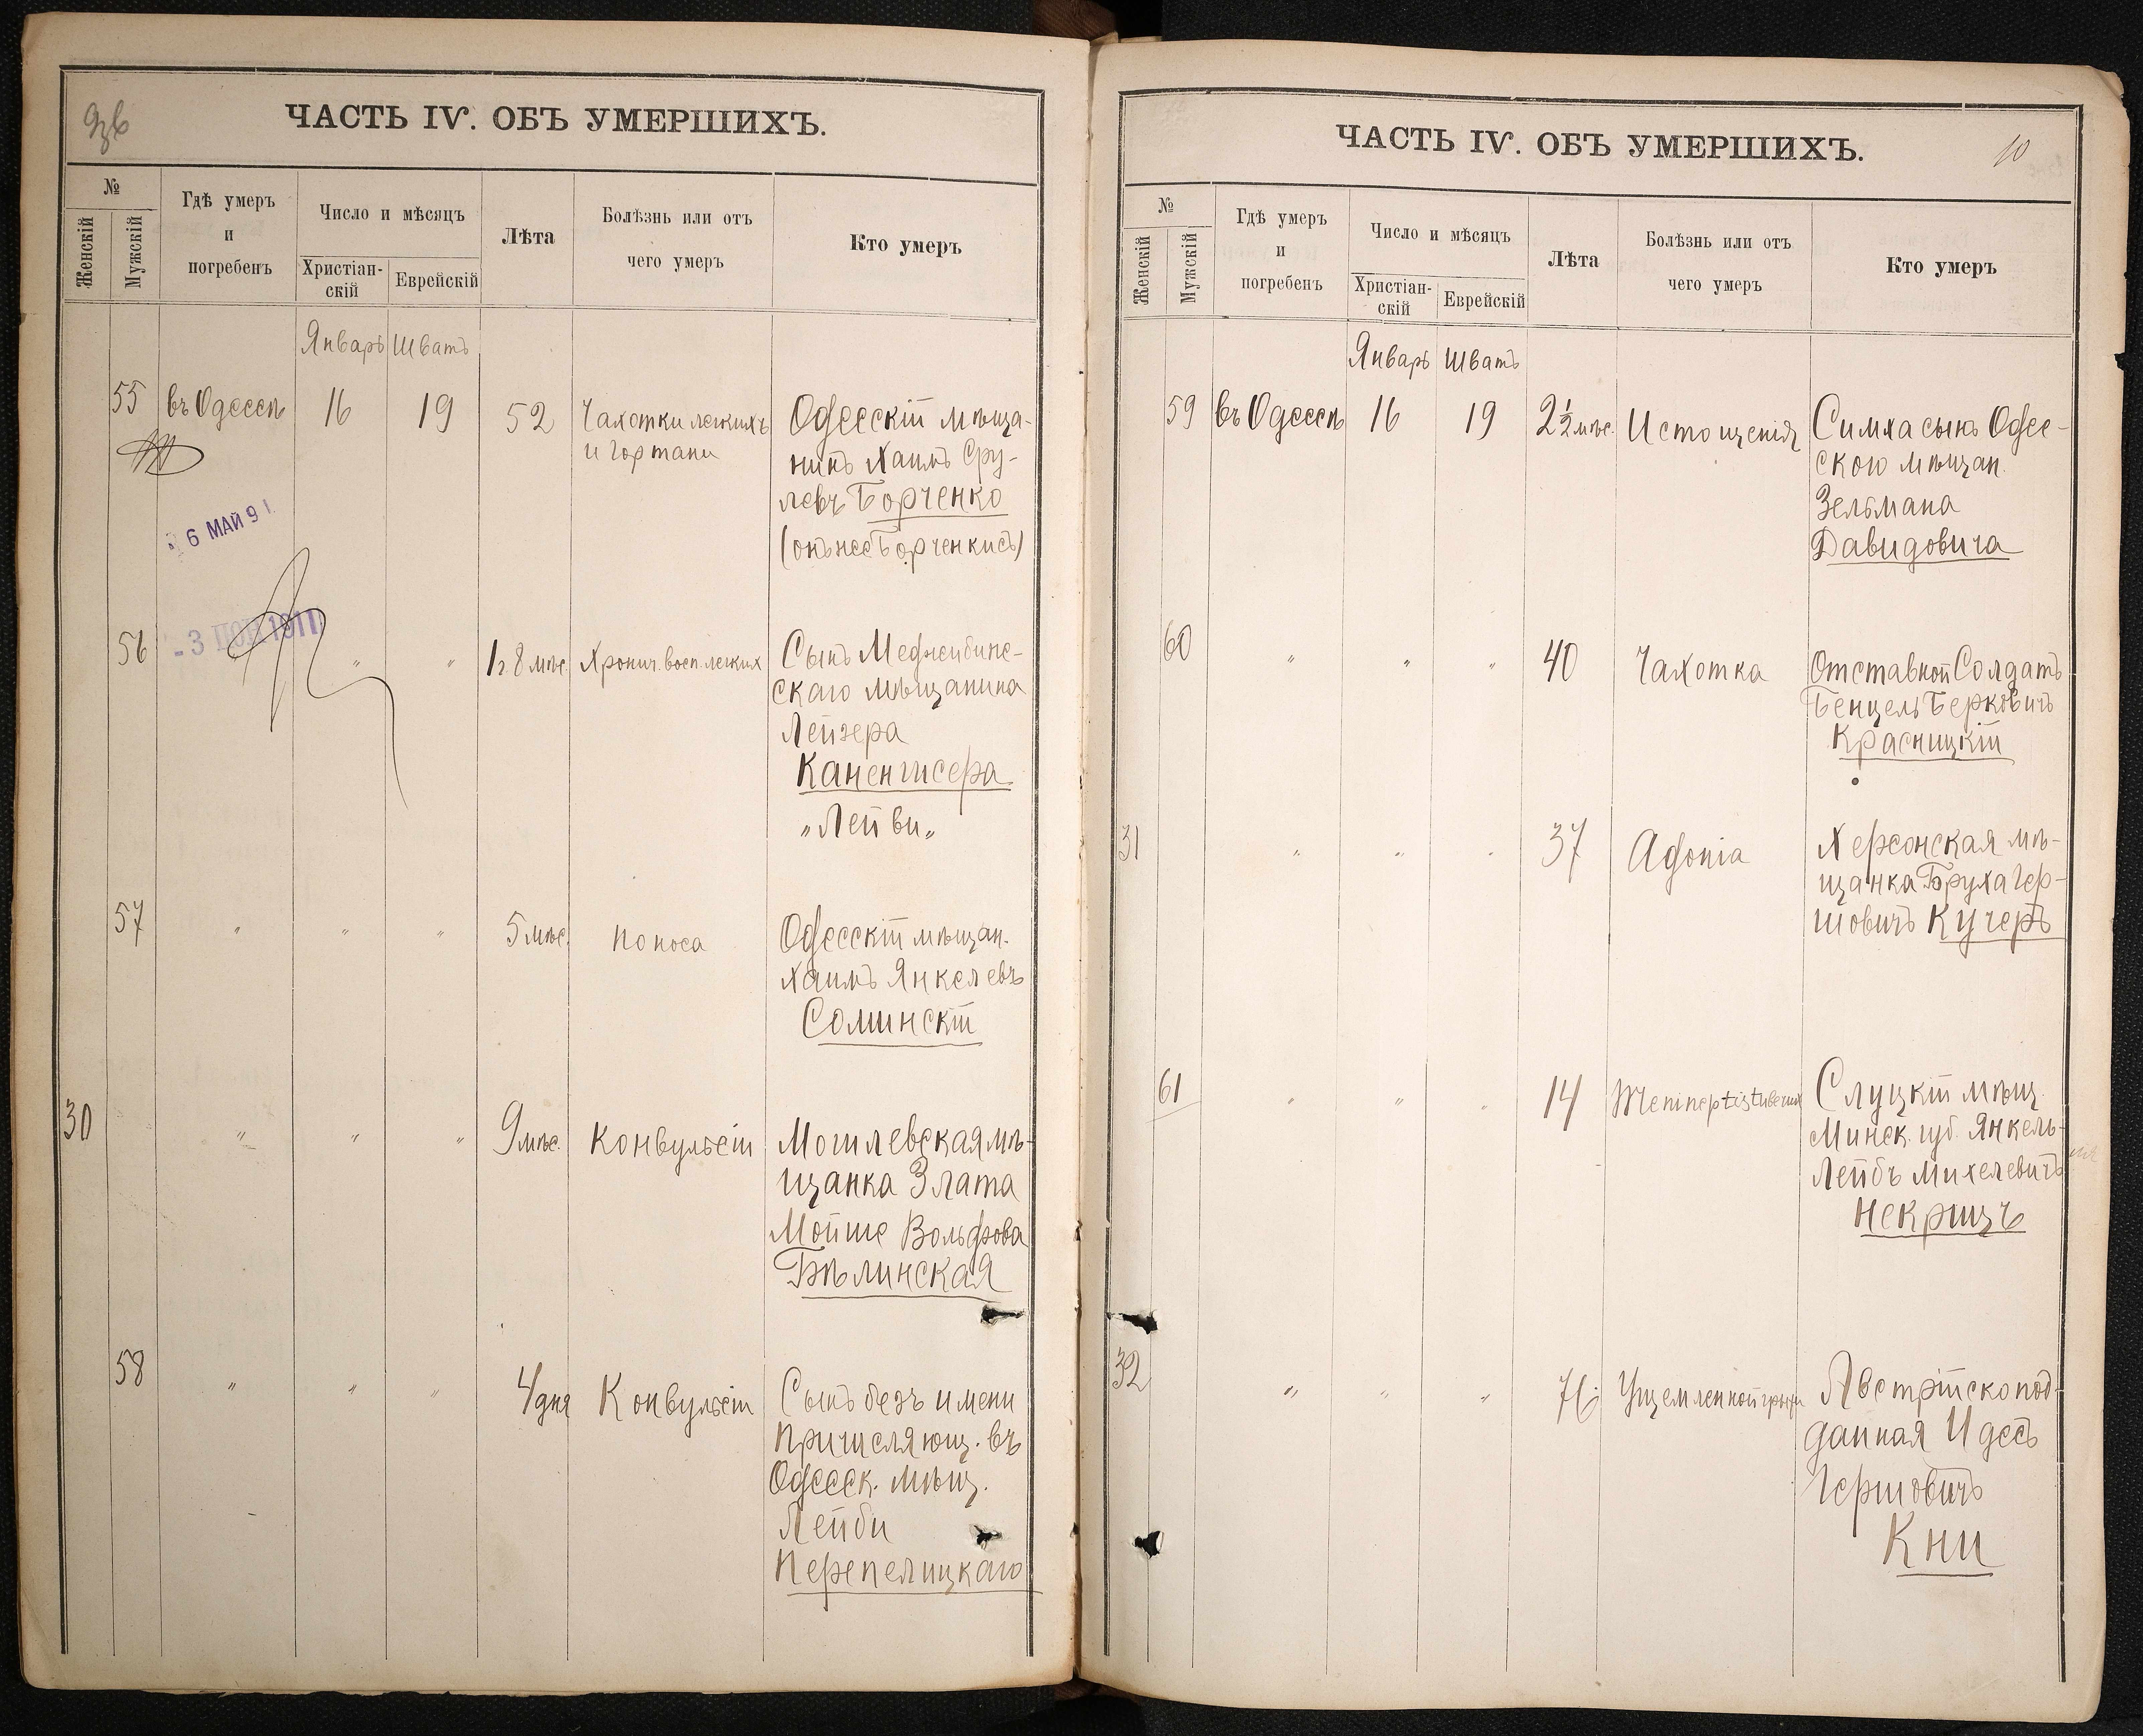 ЧАСТЬ IV. ОБЪ УМЕРШИХЪ.
№
Женскій
Мужскій
Гдѣ умеръ
и
погребенъ
Число и мѣсяцъ
Христіан-
скій
Еврейскій
Лѣта
Болѣзнь или отъ
чего умеръ
Кто умеръ
Январь Шватъ
55 въ Одессѣ 16 19 52 Чахотки легкихъ Одесскій мѣща-
и гортани нинъ Хаимъ Сру-
левъ Борченко
(онъ же Борченкисъ)
6 МАЙ 91
- 3 1911
56 " " " 1 г. 8 мѣс. Хронич. восп. легких Сынъ Меджибине-
скаго мѣщанина
Лейзера
Каненгисера
„Лейви„
57 " " " 5 мѣс. Поноса Одесскій мѣщан.
Хаимъ Янкелевъ
Соминскій
30 " " " 9 мѣс. Конвульсіи Могилевская мѣ-
щанка Злата
Мойше Вольфова
Бѣлинская
58 " " " 4 дня Конвульсіи Сынъ безъ имени
причисляющ. въ
Одесск. мѣщ.
Лейби
Перепелицкаго
ЧАСТЬ IV. ОБЪ УМЕРШИХЪ.
10
№
Женскій
Мужскій
Гдѣ умеръ
и
погребенъ
Число и мѣсяцъ
Христіан-
скій
Еврейскій
Лѣта
Болѣзнь или отъ
чего умеръ
Кто умеръ
Январь Шватъ
59 въ Одессѣ 16 19 2½ мѣс. Истощенія Симха сынъ Одес-
ского мѣщан.
Зельмана
Давидовича
60 " " " 40 Чахотка Отставной Солдатъ
Бенцель Берковичъ
Красницкій
31 " " " 37 Agonia Херсонская мѣ-
щанка Бруха Гер-
шовичъ Кучеръ
61 " " " 14 Слуцкій мѣщ.
Минск. губ. Янкель-
Лейбъ Михелевичъ
Некрицъ
32 " " " Ущемленной грыжи Австрійскопод-
данная Идесъ
Гершовичъ
Кни